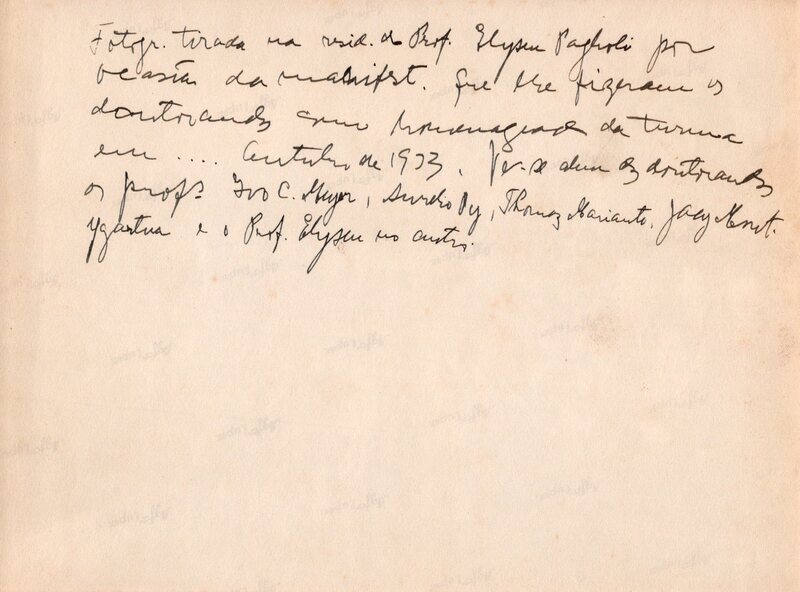 Fotogr. tirada na resid. do Prof. Elyseu Paglioli por
ocasião da manifest. que lhe fizeram os
doutorandos como homenageado da turma
em .... Outubro de 1933. Ve-se alem dos doutorandos
os profs Ivo C. Meyer, Aurelio Py, Thomaz Mariante, Jacy Monst.
Ygartua e o Prof. Elyseu no centro.